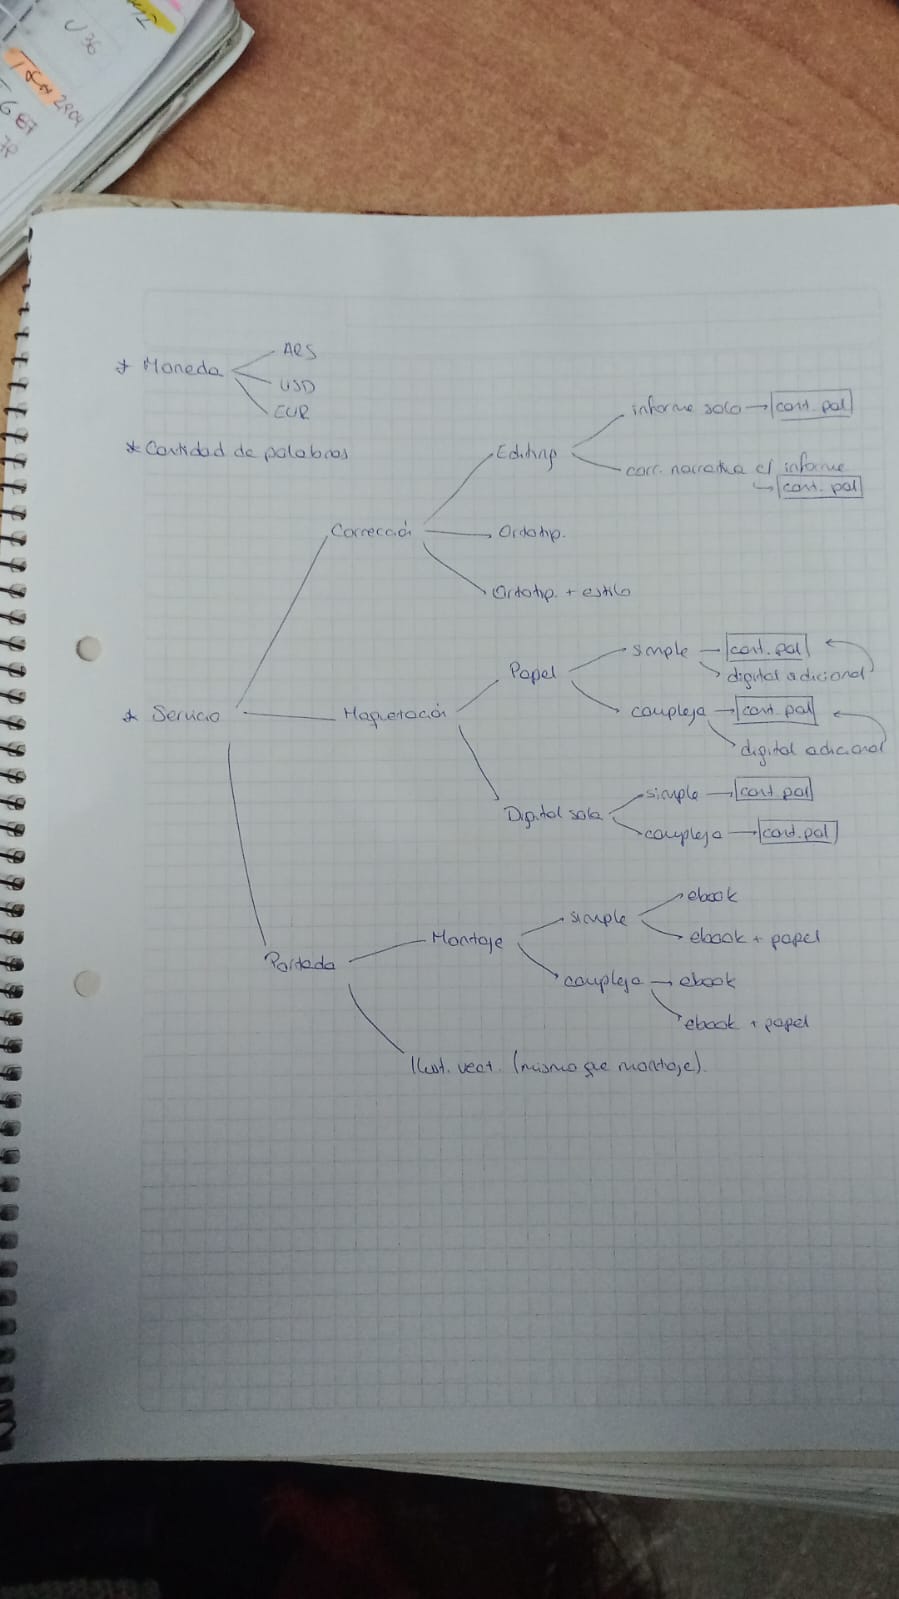 U36
TCH 2904
* Moneda
ARS
USD
EUR
* Cantidad de palabras
* Servicio
Corrección
Editing
informe solo → cant. pal
corr. narrativa c/ informe
↳ cant. pal
Ortotip.
Ortotip. + estilo
Maquetación
Papel
simple → cant. pal
digital adicional
compleja → cant. pal
digital adicional
Digital sola
simple → cant. pal
compleja → cant. pal
Portada
Montaje
simple
ebook
ebook + papel
compleja → ebook
ebook + papel
Ilust. vect. (mismo que montaje).